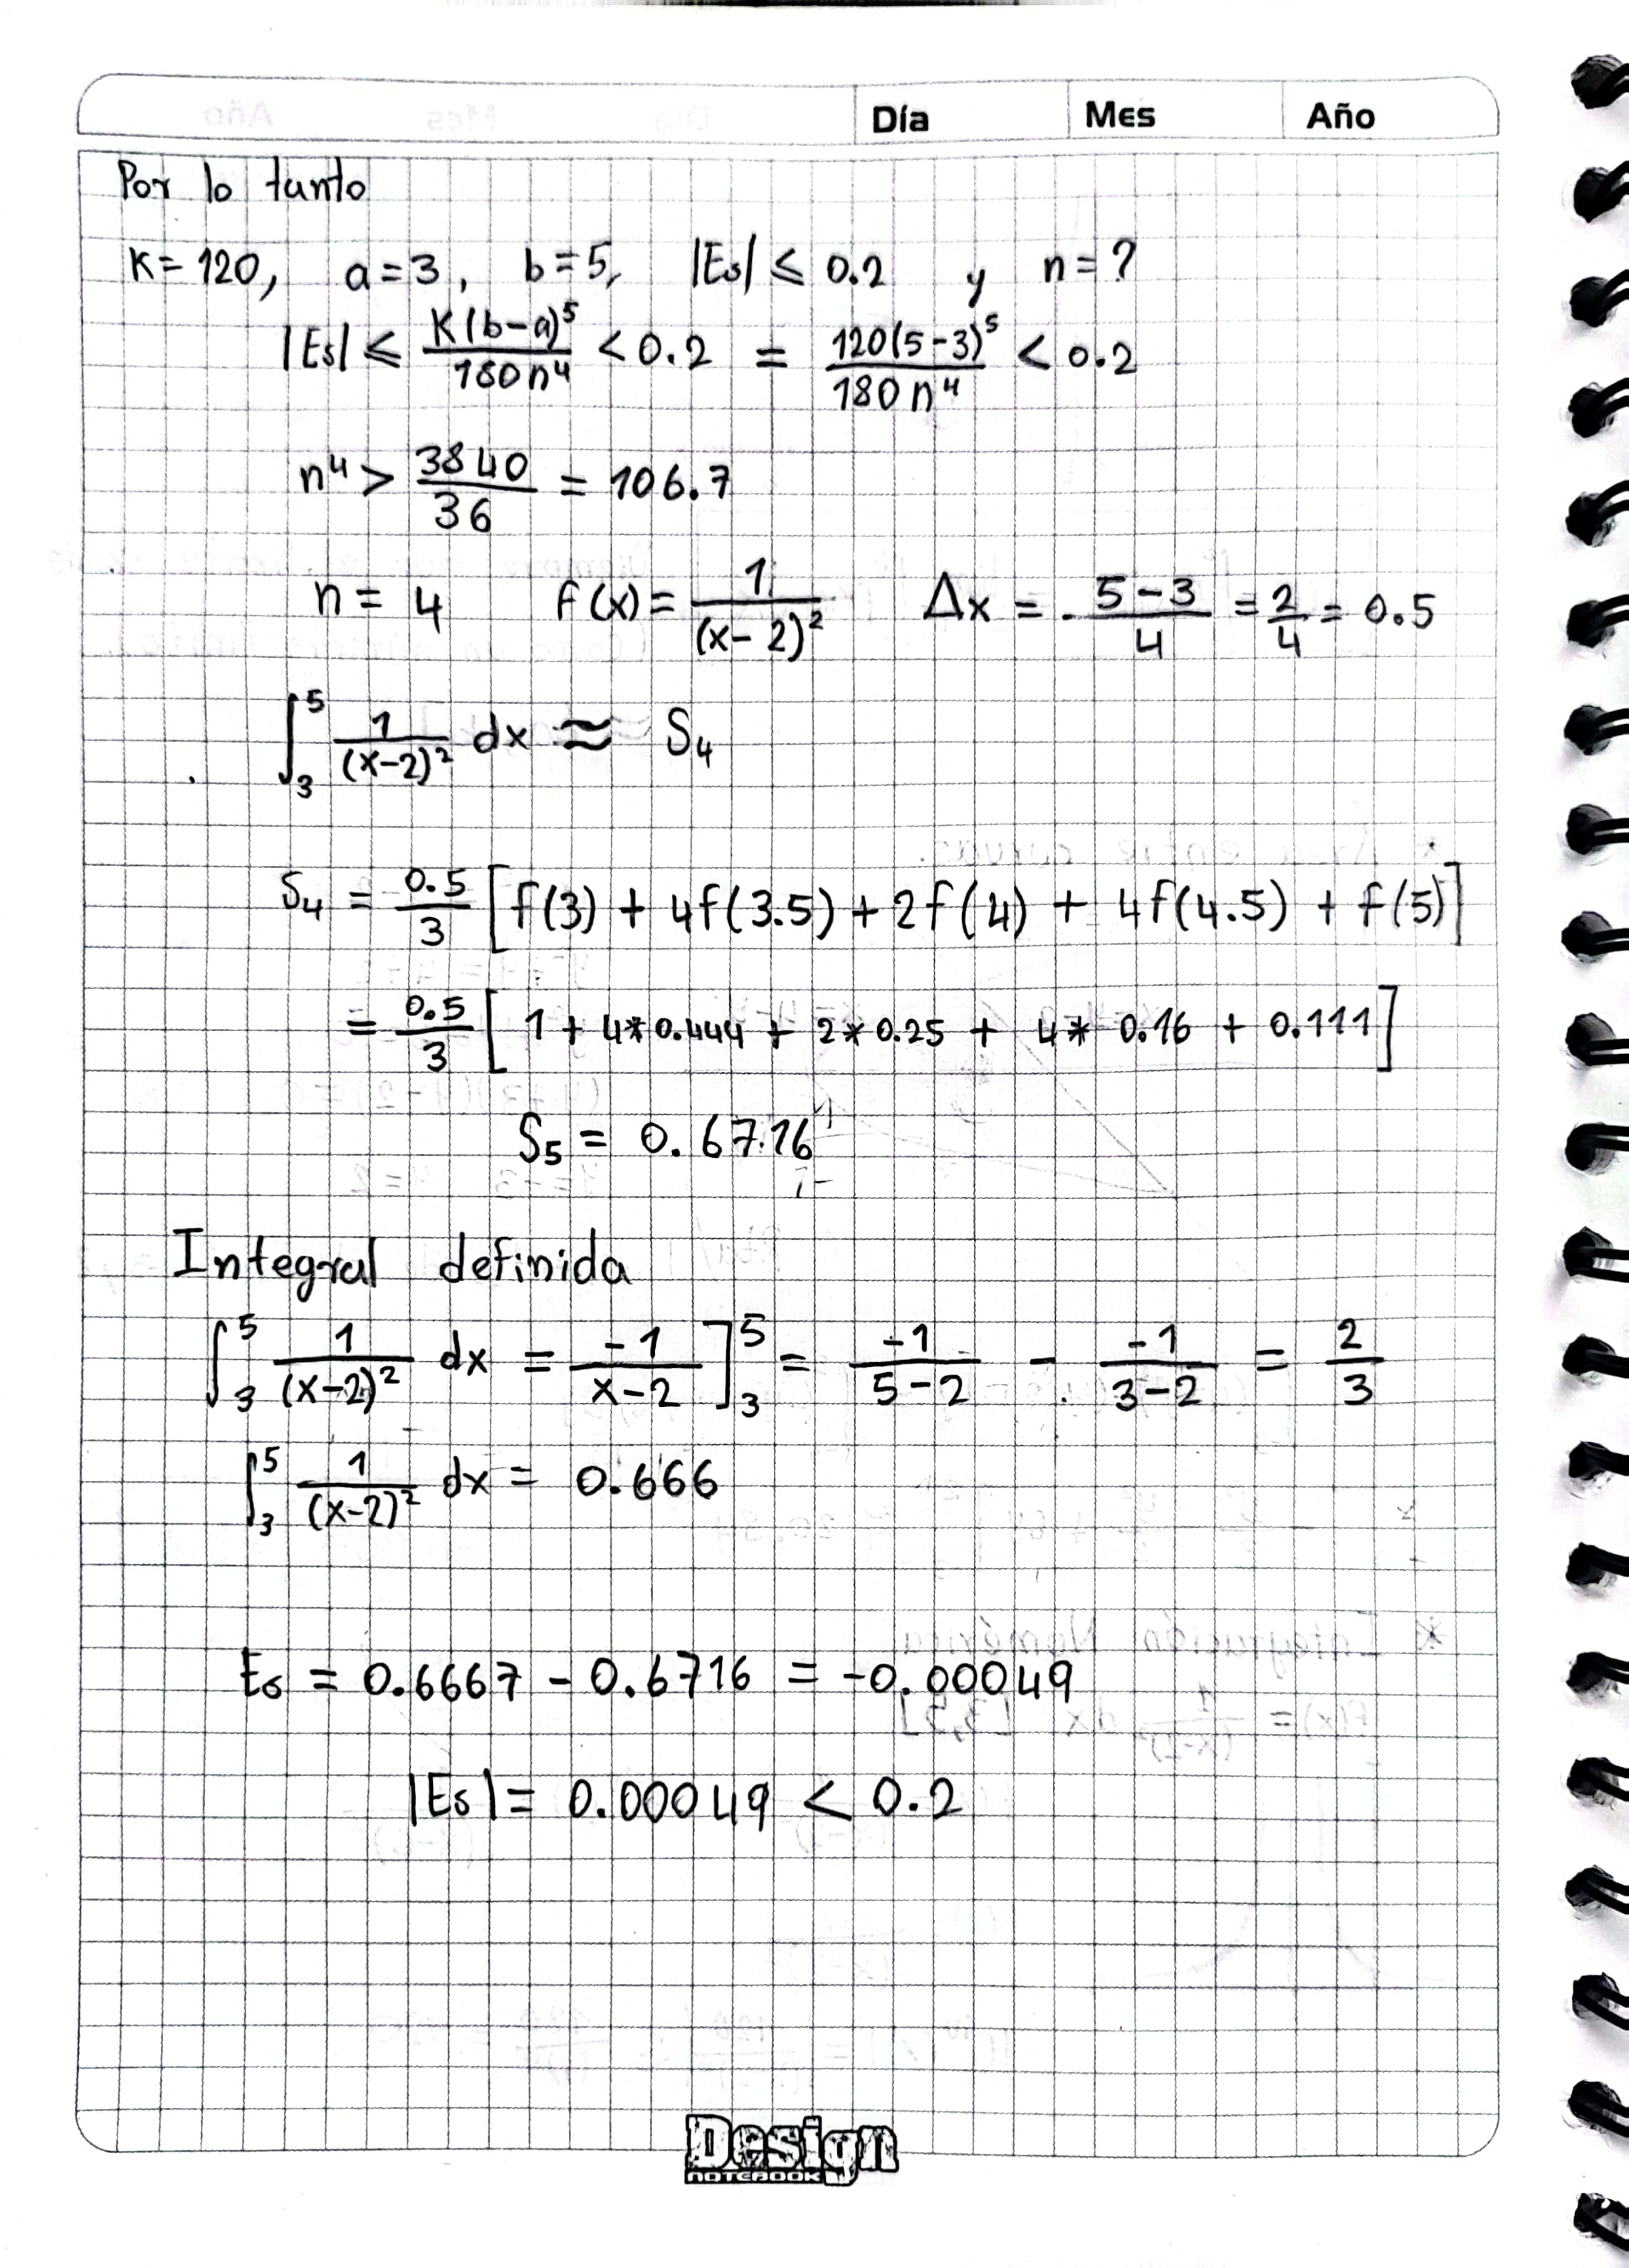 Día Mes Año
Por lo tanto
K = 120, a = 3, b = 5, |Es| ≤ 0.2 y n = ?
|Es| ≤ K(b-a)⁵/180n⁴ < 0.2 = 120(5-3)⁵/180n⁴ < 0.2
n⁴ > 3840/36 = 106.7
n = 4 f(x) = 1/(x-2)² Δx = 5-3/4 = 2/4 = 0.5
∫₃⁵ 1/(x-2)² dx ≈ S₄
S₄ = 0.5/3 [f(3) + 4f(3.5) + 2f(4) + 4f(4.5) + f(5)]
= 0.5/3 [1 + 4*0.444 + 2*0.25 + 4*0.16 + 0.111]
S₅ = 0.6716
Integral definida
∫₃⁵ 1/(x-2)² dx = -1/x-2 ]₃⁵ = -1/5-2 - -1/3-2 = 2/3
∫₃⁵ 1/(x-2)² dx = 0.666
Es = 0.6667 - 0.6716 = -0.00049
|Es| = 0.00049 < 0.2
Design
NOTEBOOK